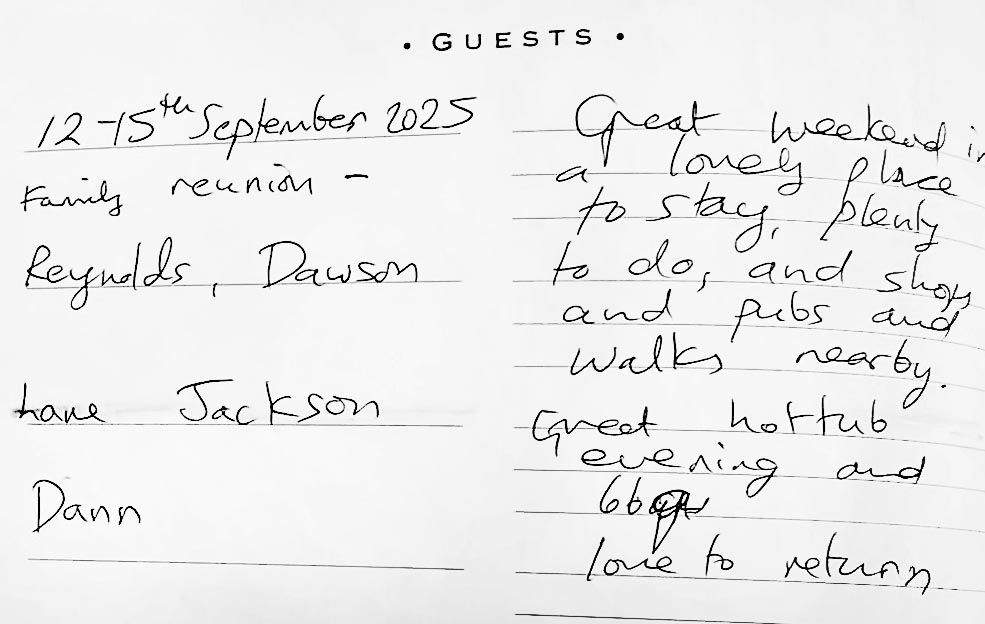 • GUESTS •
12-15th September 2025
Family reunion -
Reynolds, Dawson
Lane Jackson
Dann
Great weekend in
a lovely place
to stay, plenty
to do, and shops
and pubs and
walks nearby.
Great hottub
evening and
love to return